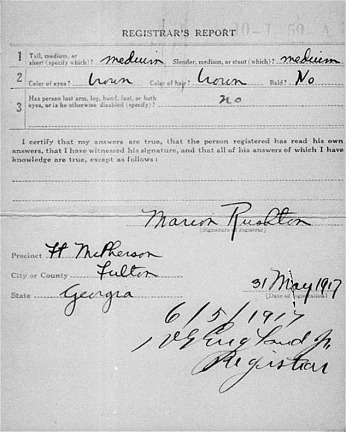 REGISTRAR'S REPORT
1 Tall, medium, or short (specify which)? medium Slender, medium, or stout (which)? medium
2 Color of eyes? brown Color of hair? brown Bald? No
3 Has person lost arm, leg, hand, foot, or both eyes, or is he otherwise disabled (specify)? no
I certify that my answers are true, that the person registered has read his own
answers, that I have witnessed his signature, and that all of his answers of which I have
knowledge are true, except as follows:
Marion Rushton
(Signature of registrar)
Precinct Ft McPherson
City or County Fulton
State Georgia
31 May 1917
(Date of registration)
6/5/1917
England Jr.
Registrar